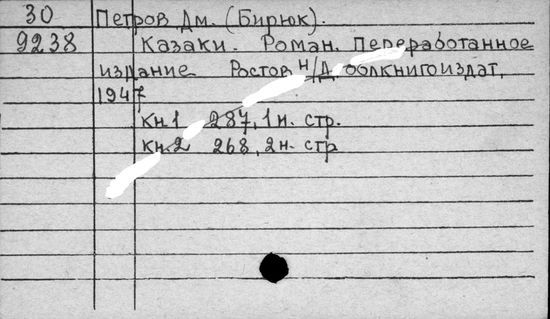 30 Петров Дм. (Бирюк).
9238 Казаки. Роман. Переработанное
издание Ростов н/Д. облкнигоиздат,
1947
кн.1 287, 1 н. стр.
кн.2 268, 2 н. стр